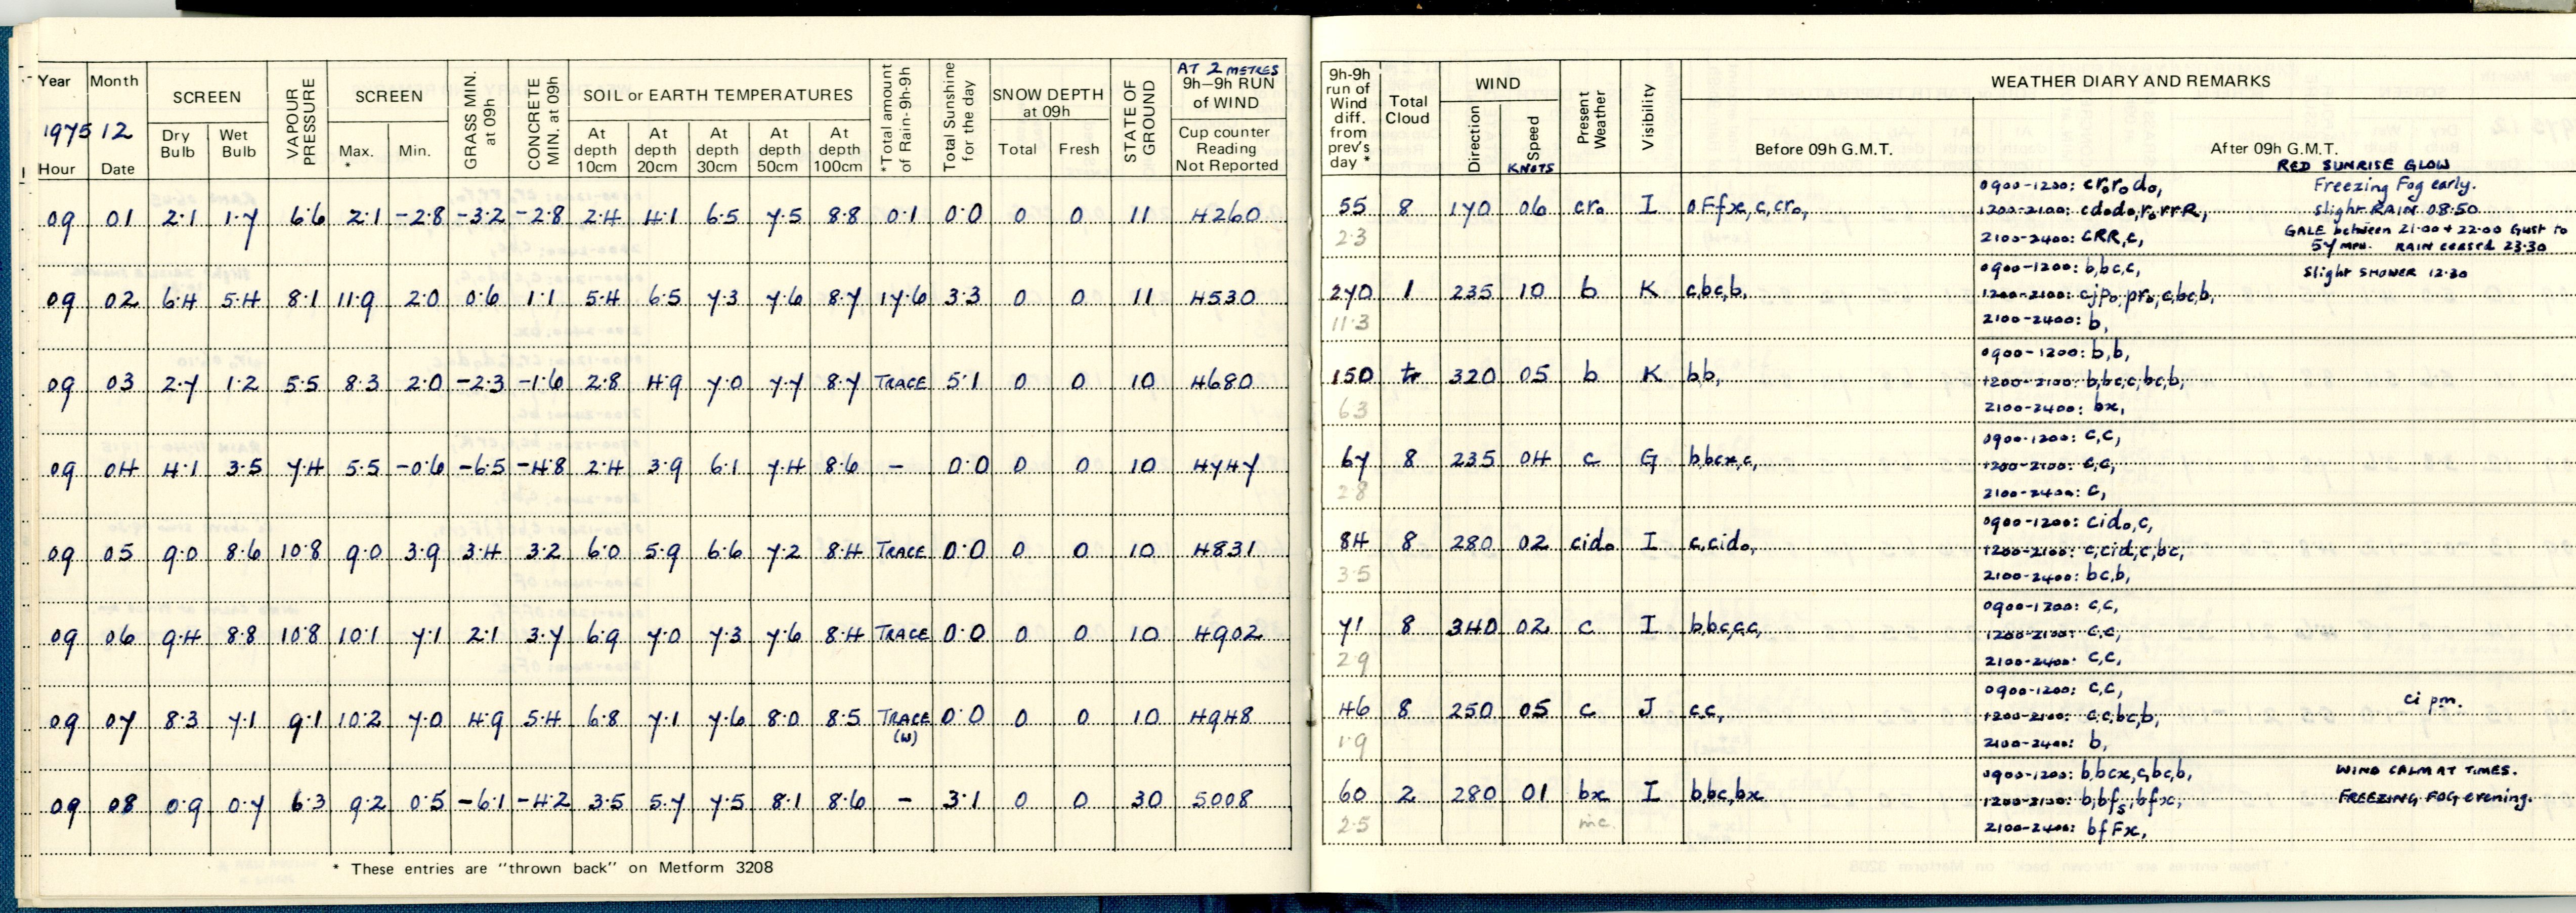 Year Month SCREEN VAPOUR PRESSURE SCREEN GRASS MIN. at 09h CONCRETE MIN. at 09h SOIL or EARTH TEMPERATURES *Total amount of Rain-9h-9h Total Sunshine for the day SNOW DEPTH at 09h STATE OF GROUND AT 2 METRES 9h–9h RUN of WIND
1975 12 Dry Bulb Wet Bulb Max. * Min. At depth 10cm At depth 20cm At depth 30cm At depth 50cm At depth 100cm Total Fresh Cup counter Reading Not Reported
Hour Date
09 01 2·1 1·7 6·6 2·1 -2·8 -3·2 -2·8 2·4 4·1 6·5 7·5 8·8 0·1 0·0 0 0 11 4260
09 02 6·4 5·4 8·1 11·9 2·0 0·6 1·1 5·4 6·5 7·3 7·6 8·7 17·6 3·3 0 0 11 4530
09 03 2·7 1·2 5·5 8·3 2·0 -2·3 -1·6 2·8 4·9 7·0 7·7 8·7 TRACE 5·1 0 0 10 4680
09 04 4·1 3·5 7·4 5·5 -0·6 -6·5 -4·8 2·4 3·9 6·1 7·4 8·6 - 0·0 0 0 10 4747
09 05 9·0 8·6 10·8 9·0 3·9 3·4 3·2 6·0 5·9 6·6 7·2 8·4 TRACE 0·0 0 0 10 4831
09 06 9·4 8·8 10·8 10·1 7·1 2·1 3·7 6·9 7·0 7·3 7·6 8·4 TRACE 0·0 0 0 10 4902
09 07 8·3 7·1 9·1 10·2 7·0 4·9 5·4 6·8 7·1 7·6 8·0 8·5 TRACE 0·0 0 0 10 4948
(W)
09 08 0·9 0·7 6·3 9·2 0·5 -6·1 -4·2 3·5 5·7 7·5 8·1 8·6 - 3·1 0 0 30 5008
* These entries are "thrown back" on Metform 3208
9h-9h run of Wind diff. from prev's day * Total Cloud WIND Direction Speed KNOTS Present Weather Visibility WEATHER DIARY AND REMARKS
Before 09h G.M.T. After 09h G.M.T.
RED SUNRISE GLOW
0900-1200: cr₀r₀d₀, Freezing Fog early.
55 8 170 06 cr₀ I oFfx,c,cr₀, 1200-2100: cd₀d₀,r₀rrR, slight RAIN 08·50
2·3 2100-2400: cRR,c, GALE between 21·00 + 22·00 Gust to
57 mph. RAIN ceased 23·30
0900-1200: b,bc,c, Slight SHOWER 12·30
270 1 235 10 b K c,bc,b, 1200-2100: cjp₀,pr₀,c,bc,b,
11·3 2100-2400: b,
0900-1200: b,b,
150 tr 320 05 b K b,b, 1200-2100: b,bc,c,bc,b,
6·3 2100-2400: bx,
0900-1200: c,c,
67 8 235 04 c G b,bcx,c, 1200-2100: c,c,
2·8 2100-2400: c,
0900-1200: cid₀,c,
84 8 280 02 cid₀ I c,cid₀, 1200-2100: c,cid,c,bc,
3·5 2100-2400: bc,b,
0900-1200: c,c,
71 8 340 02 c I b,bc,c,c, 1200-2100: c,c,
2·9 2100-2400: c,c,
0900-1200: c,c,
46 8 250 05 c J c,c, 1200-2100: c,c,bc,b, ci pm.
1·9 2100-2400: b,
0900-1200: b,bcx,c,bc,b, WIND CALM AT TIMES.
60 2 280 01 bx I b,bc,bx 1200-2100: b,bfs,bfx, FREEZING FOG evening.
2·5 m.c. 2100-2400: bfFx,